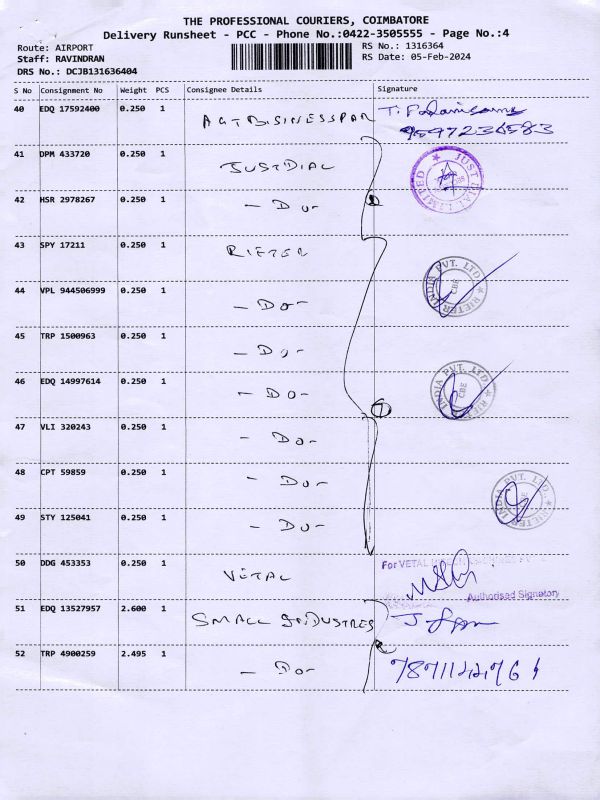 THE PROFESSIONAL COURIERS, COIMBATORE
Delivery Runsheet - PCC - Phone No.:0422-3505555 - Page No.:4
Route: AIRPORT
RS No.: 1316364
Staff: RAVINDRAN
RS Date: 05-Feb-2024
DRS No.: DCJB131636404
S No Consignment No Weight PCS Consignee Details Signature
40 EDQ 17592400 0.250 1 AGT BUSINESSPAR
9597236583
41 DPM 433720 0.250 1 JUSTDIAL JUST DIAL LIMITED
42 HSR 2978267 0.250 1 - Do -
43 SPY 17211 0.250 1 RIETER
44 VPL 944506999 0.250 1 - Do - RIETER INDIA PVT. LTD. CBE
45 TRP 1500963 0.250 1 - Do -
46 EDQ 14997614 0.250 1 - Do - RIETER INDIA PVT. LTD. CBE
47 VLI 320243 0.250 1 - Do -
48 CPT 59859 0.250 1 - Do -
49 STY 125041 0.250 1 - Do - RIETER INDIA PVT. LTD. CBE
50 DDG 453353 0.250 1 VETAL For VETAL
Authorised Signatory
51 EDQ 13527957 2.600 1 SMALL INDUSTRES
52 TRP 4900259 2.495 1 - Do -